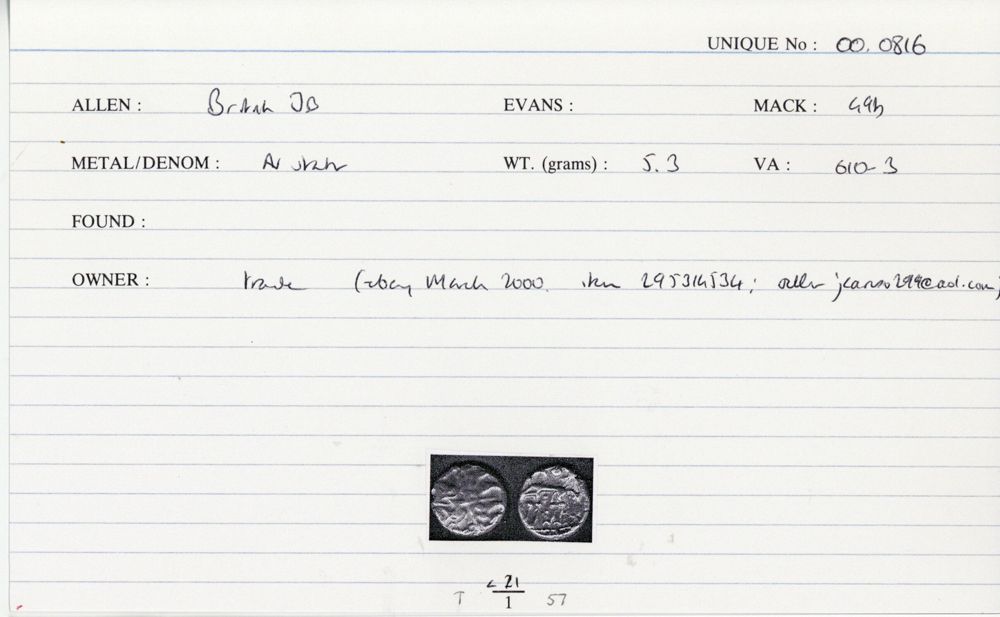 UNIQUE No : 00.0816
ALLEN : British JB EVANS : MACK : 49b
METAL/DENOM : AV stater WT. (grams) : 5.3 VA : 610-3
FOUND :
OWNER : trade (ebay March 2000. item 295314534; seller
c 21
T 1 57